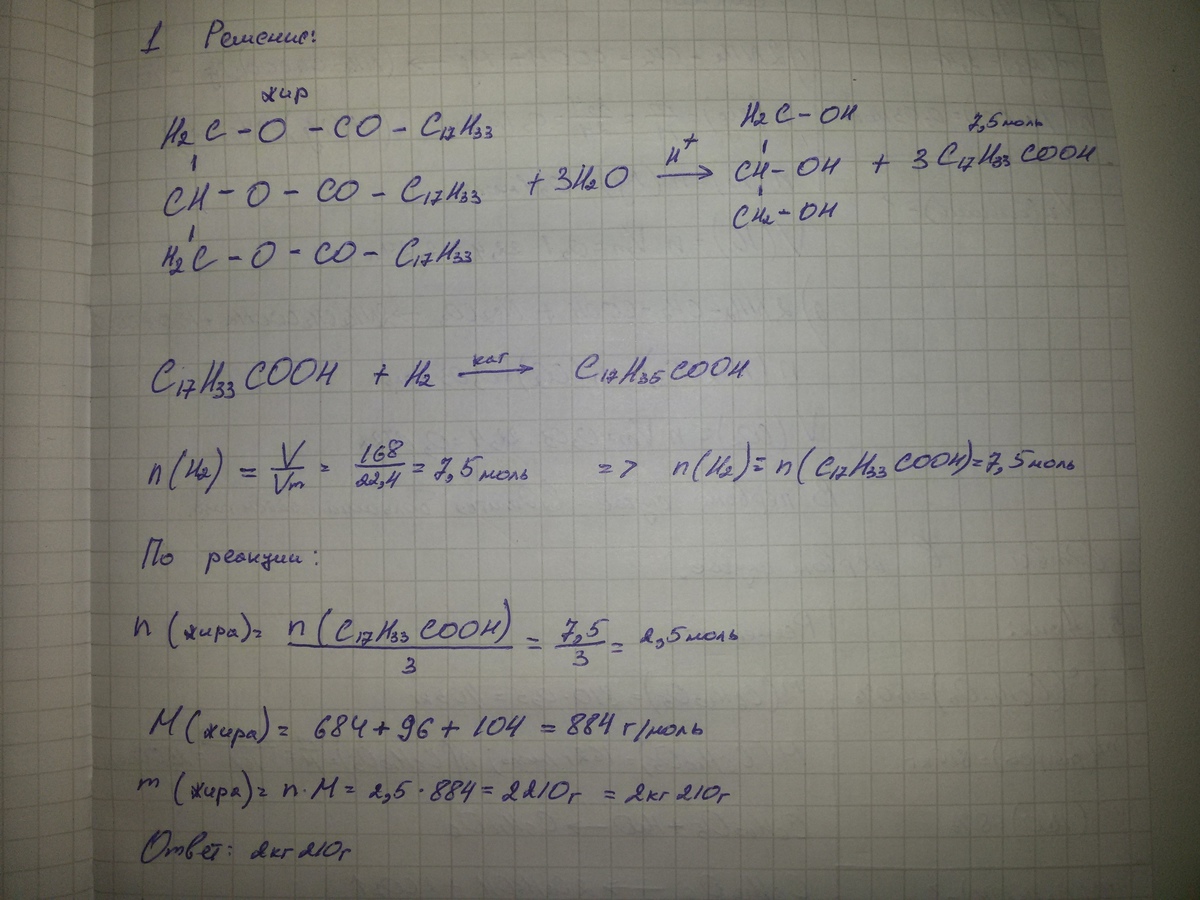 1 Решение:
жир
H₂C – O – CO – C₁₇H₃₃
CH – O – CO – C₁₇H₃₃
H₂C – O – CO – C₁₇H₃₃
+ 3H₂O
H⁺
→
H₂C – OH
CH – OH
CH₂ – OH
+ 3 C₁₇H₃₃COOH
7,5 моль
C₁₇H₃₃COOH + H₂ →(кат) C₁₇H₃₅COOH
n(H₂) = V/Vm = 168/22,4 = 7,5 моль => n(H₂) = n(C₁₇H₃₃COOH) = 7,5 моль
По реакции:
n(жира) = n(C₁₇H₃₃COOH)/3 = 7,5/3 = 2,5 моль
M(жира) = 684 + 96 + 104 = 884 г/моль
m(жира) = n · M = 2,5 · 884 = 2210г = 2кг 210г
Ответ: 2кг 210г